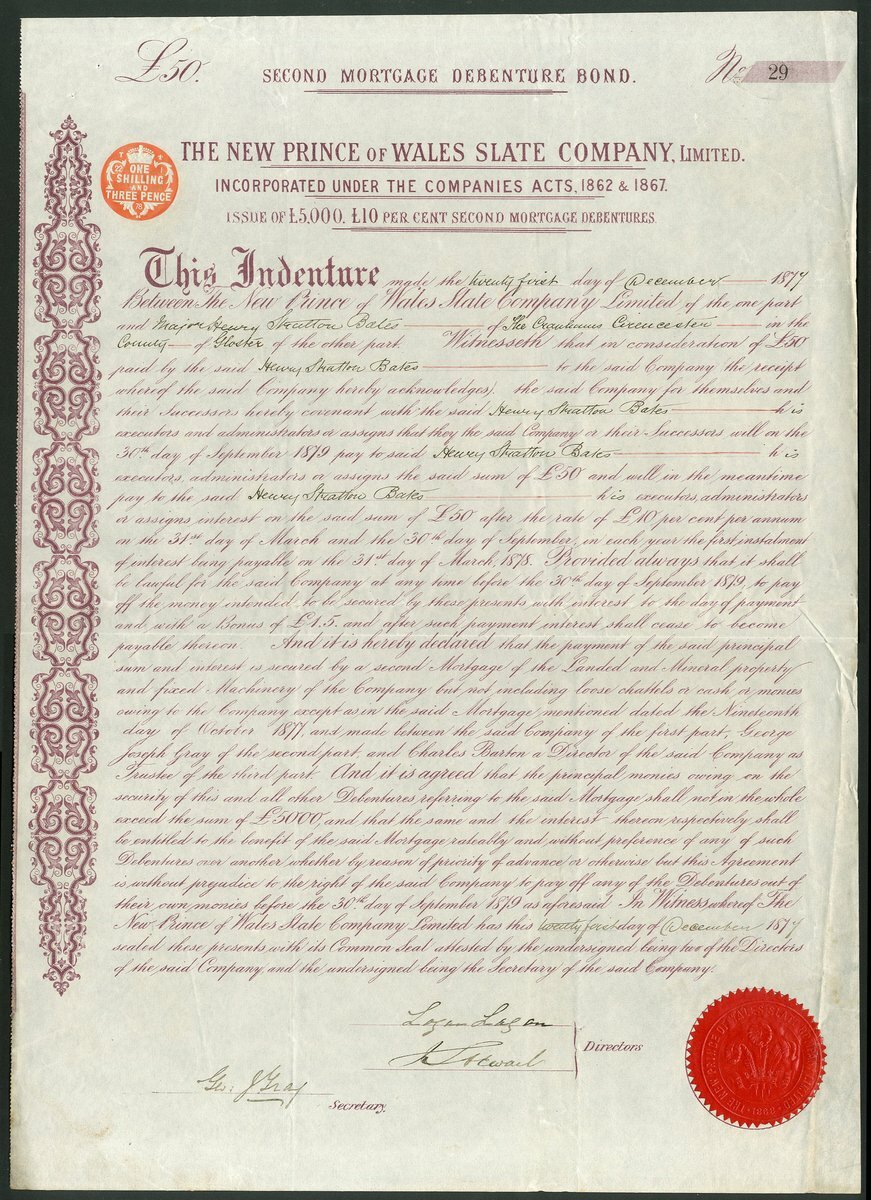 £50. SECOND MORTGAGE DEBENTURE BOND. No 29
THE NEW PRINCE OF WALES SLATE COMPANY, LIMITED.
INCORPORATED UNDER THE COMPANIES ACTS, 1862 & 1867.
ISSUE OF £5,000. £10 PER CENT SECOND MORTGAGE DEBENTURES.
ONE
SHILLING
AND
THREE PENCE
This Indenture made the twenty first day of December 1877
Between The New Prince of Wales Slate Company Limited of the one part
and Major Henry Stratton Bates of The Cirencester in the
County of Gloster of the other part. Witnesseth that in consideration of £50
paid by the said Henry Stratton Bates to the said Company the receipt
whereof the said Company hereby acknowledges). the said Company for themselves and
their Successors hereby covenant with the said Henry Stratton Bates his
executors and administrators or assigns that they the said Company or their Successors will on the
30th day of September 1879 pay to said Henry Stratton Bates his
executors, administrators or assigns the said sum of £50 and will in the meantime
pay to the said Henry Stratton Bates his executors, administrators
or assigns interest on the said sum of £50 after the rate of £10 per cent per annum
on the 31st day of March and the 30th day of September, in each year the first instalment
of interest being payable on the 31st day of March, 1878. Provided always that it shall
be lawful for the said Company at any time before the 30th day of September 1879, to pay
off the money intended, to be secured by these presents with interest to the day of payment
and with a Bonus of £1.5. and after such payment interest shall cease to become
payable thereon. And it is hereby declared that the payment of the said principal
sum and interest is secured by a second Mortgage of the Landed and Mineral property
and fixed Machinery of the Company but not including loose chattels or cash or monies
owing to the Company except as in the said Mortgage mentioned dated the Nineteenth
day of October 1877, and made between the said Company of the first part, George
Joseph Gray of the second part, and Charles Barton a Director of the said Company as
Trustee of the third part. And it is agreed that the principal monies owing on the
security of this and all other Debentures referring to the said Mortgage shall not in the whole
exceed the sum of £5000, and that the same and the interest thereon respectively shall
be entitled to the benefit of the said Mortgage rateably and without preference of any of such
Debentures over another whether by reason of priority of advance or otherwise but this Agreement
is without prejudice to the right of the said Company to pay off any of the Debentures out of
their own monies before the 30th day of September 1879 as aforesaid. In Witness whereof The
New Prince of Wales Slate Company Limited has this twenty first day of December 1877
sealed these presents with its Common Seal attested by the undersigned being two of the Directors
of the said Company, and the undersigned being the Secretary of the said Company.
Directors
Geo. J Gray
Secretary.